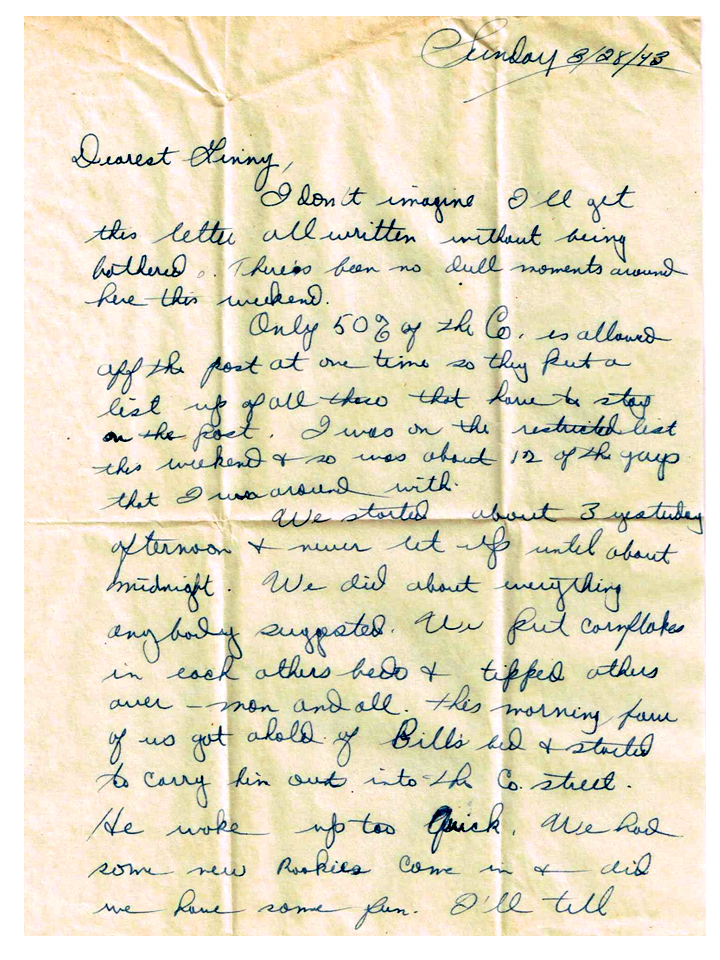 Sunday 3/28/43
Dearest Ginny,
I don't imagine I'll get
this letter all written without being
bothered. There's been no dull moments around
here this weekend.
Only 50% of the Co. is allowed
off the post at one time so they put a
list up of all those that have to stay
on the post. I was on the restricted list
this weekend & so was about 12 of the guys
that I was around with.
We started about 3 yesterday
afternoon & never let up until about
midnight. We did about everything
anybody suggested. We put cornflakes
in each others beds & tipped others
over - man and all. This morning four
of us got ahold of Bill's bed & started
to carry him out into the Co. street.
He woke up too quick. We had
some new Rookies come in & did
we have some fun. I'll tell